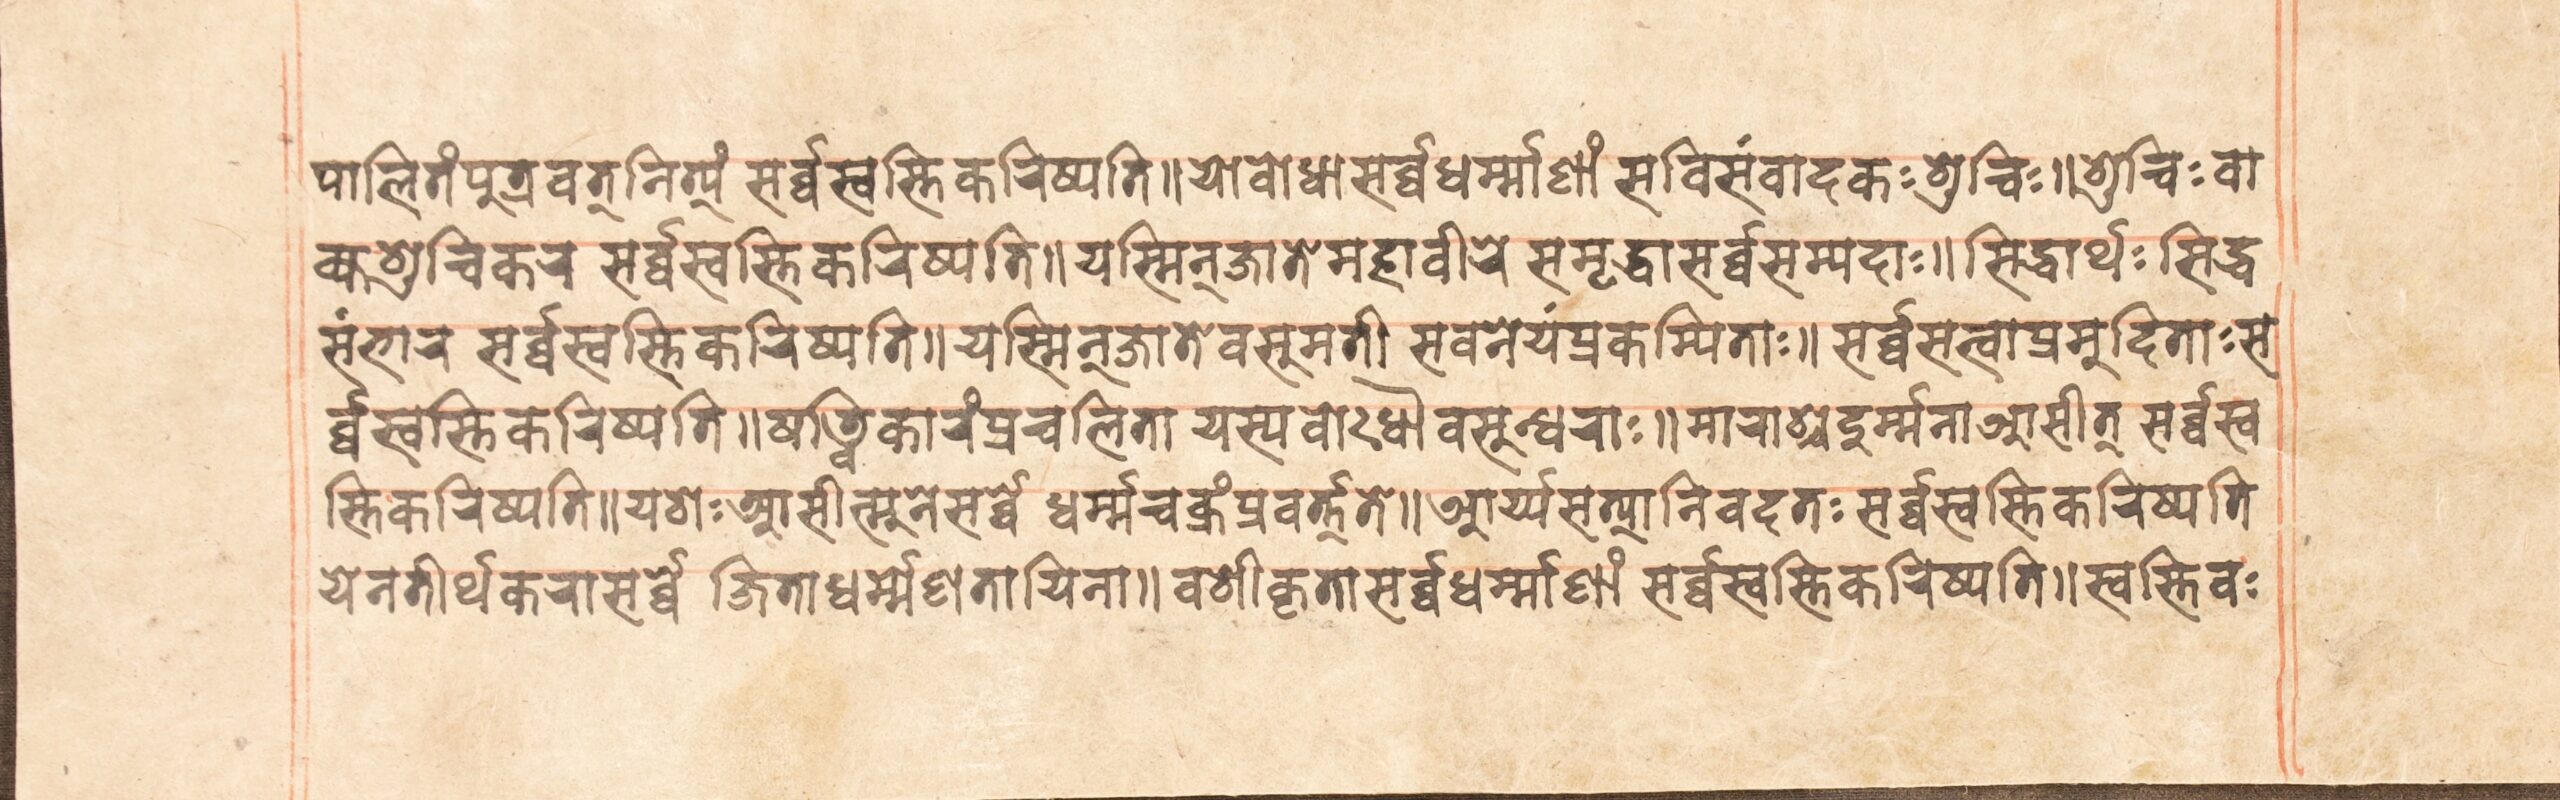 पालितंपुत्रवत्नित्यं सर्व्वस्वस्तिकरिष्यति॥योवोधासर्व्वधर्म्माणां सविसंवादकःशुचिः॥शुचिःवा
क्यशुचिकर सर्व्वस्वस्तिकरिष्यति॥यस्मिन्जातेमहावीरे समृद्धासर्व्वसम्पदाः॥सिद्धार्थःसिद्ध
संभार सर्व्वस्वस्तिकरिष्यति॥यस्मिन्जातेवसुमती सवनेयंप्रकम्पिताः॥सर्व्वसत्वाप्रमुदिताःस
र्व्वस्वस्तिकरिष्यति॥षत्विकारंप्रचलिता यस्यवोऽधौवसुन्धराः॥माराश्चदुर्म्मनाआसीत् सर्व्वस्व
स्तिकरिष्यति॥यशेःआसीत्मुनेसर्व्वे धर्म्मचक्रंप्रवर्त्तते॥आर्य्यसत्यानिवदतःसर्व्वस्वस्तिकरिष्यति
येनतीर्थकरासर्व्वे जिताधर्म्मेणतायिना॥वशीकृतासर्व्वधर्म्माणां सर्व्वस्वस्तिकरिष्यति॥स्वस्तिवः